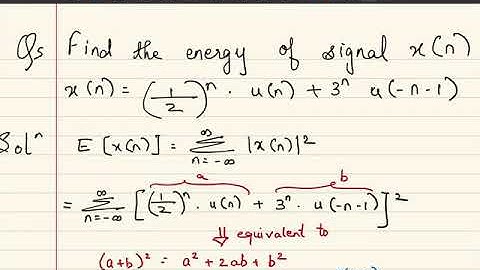 Qs Find the energy of signal x(n)
x(n) = (1/2)^n . u(n) + 3^n u(-n-1)
Sol^n E [x(n)] = ∞ Σ n=-∞ |x(n)|^2
a b
= ∞ Σ n=-∞ [(1/2)^n . u(n) + 3^n . u(-n-1)]^2
⇓ equivalent to
(a+b)^2 = a^2 + 2ab + b^2